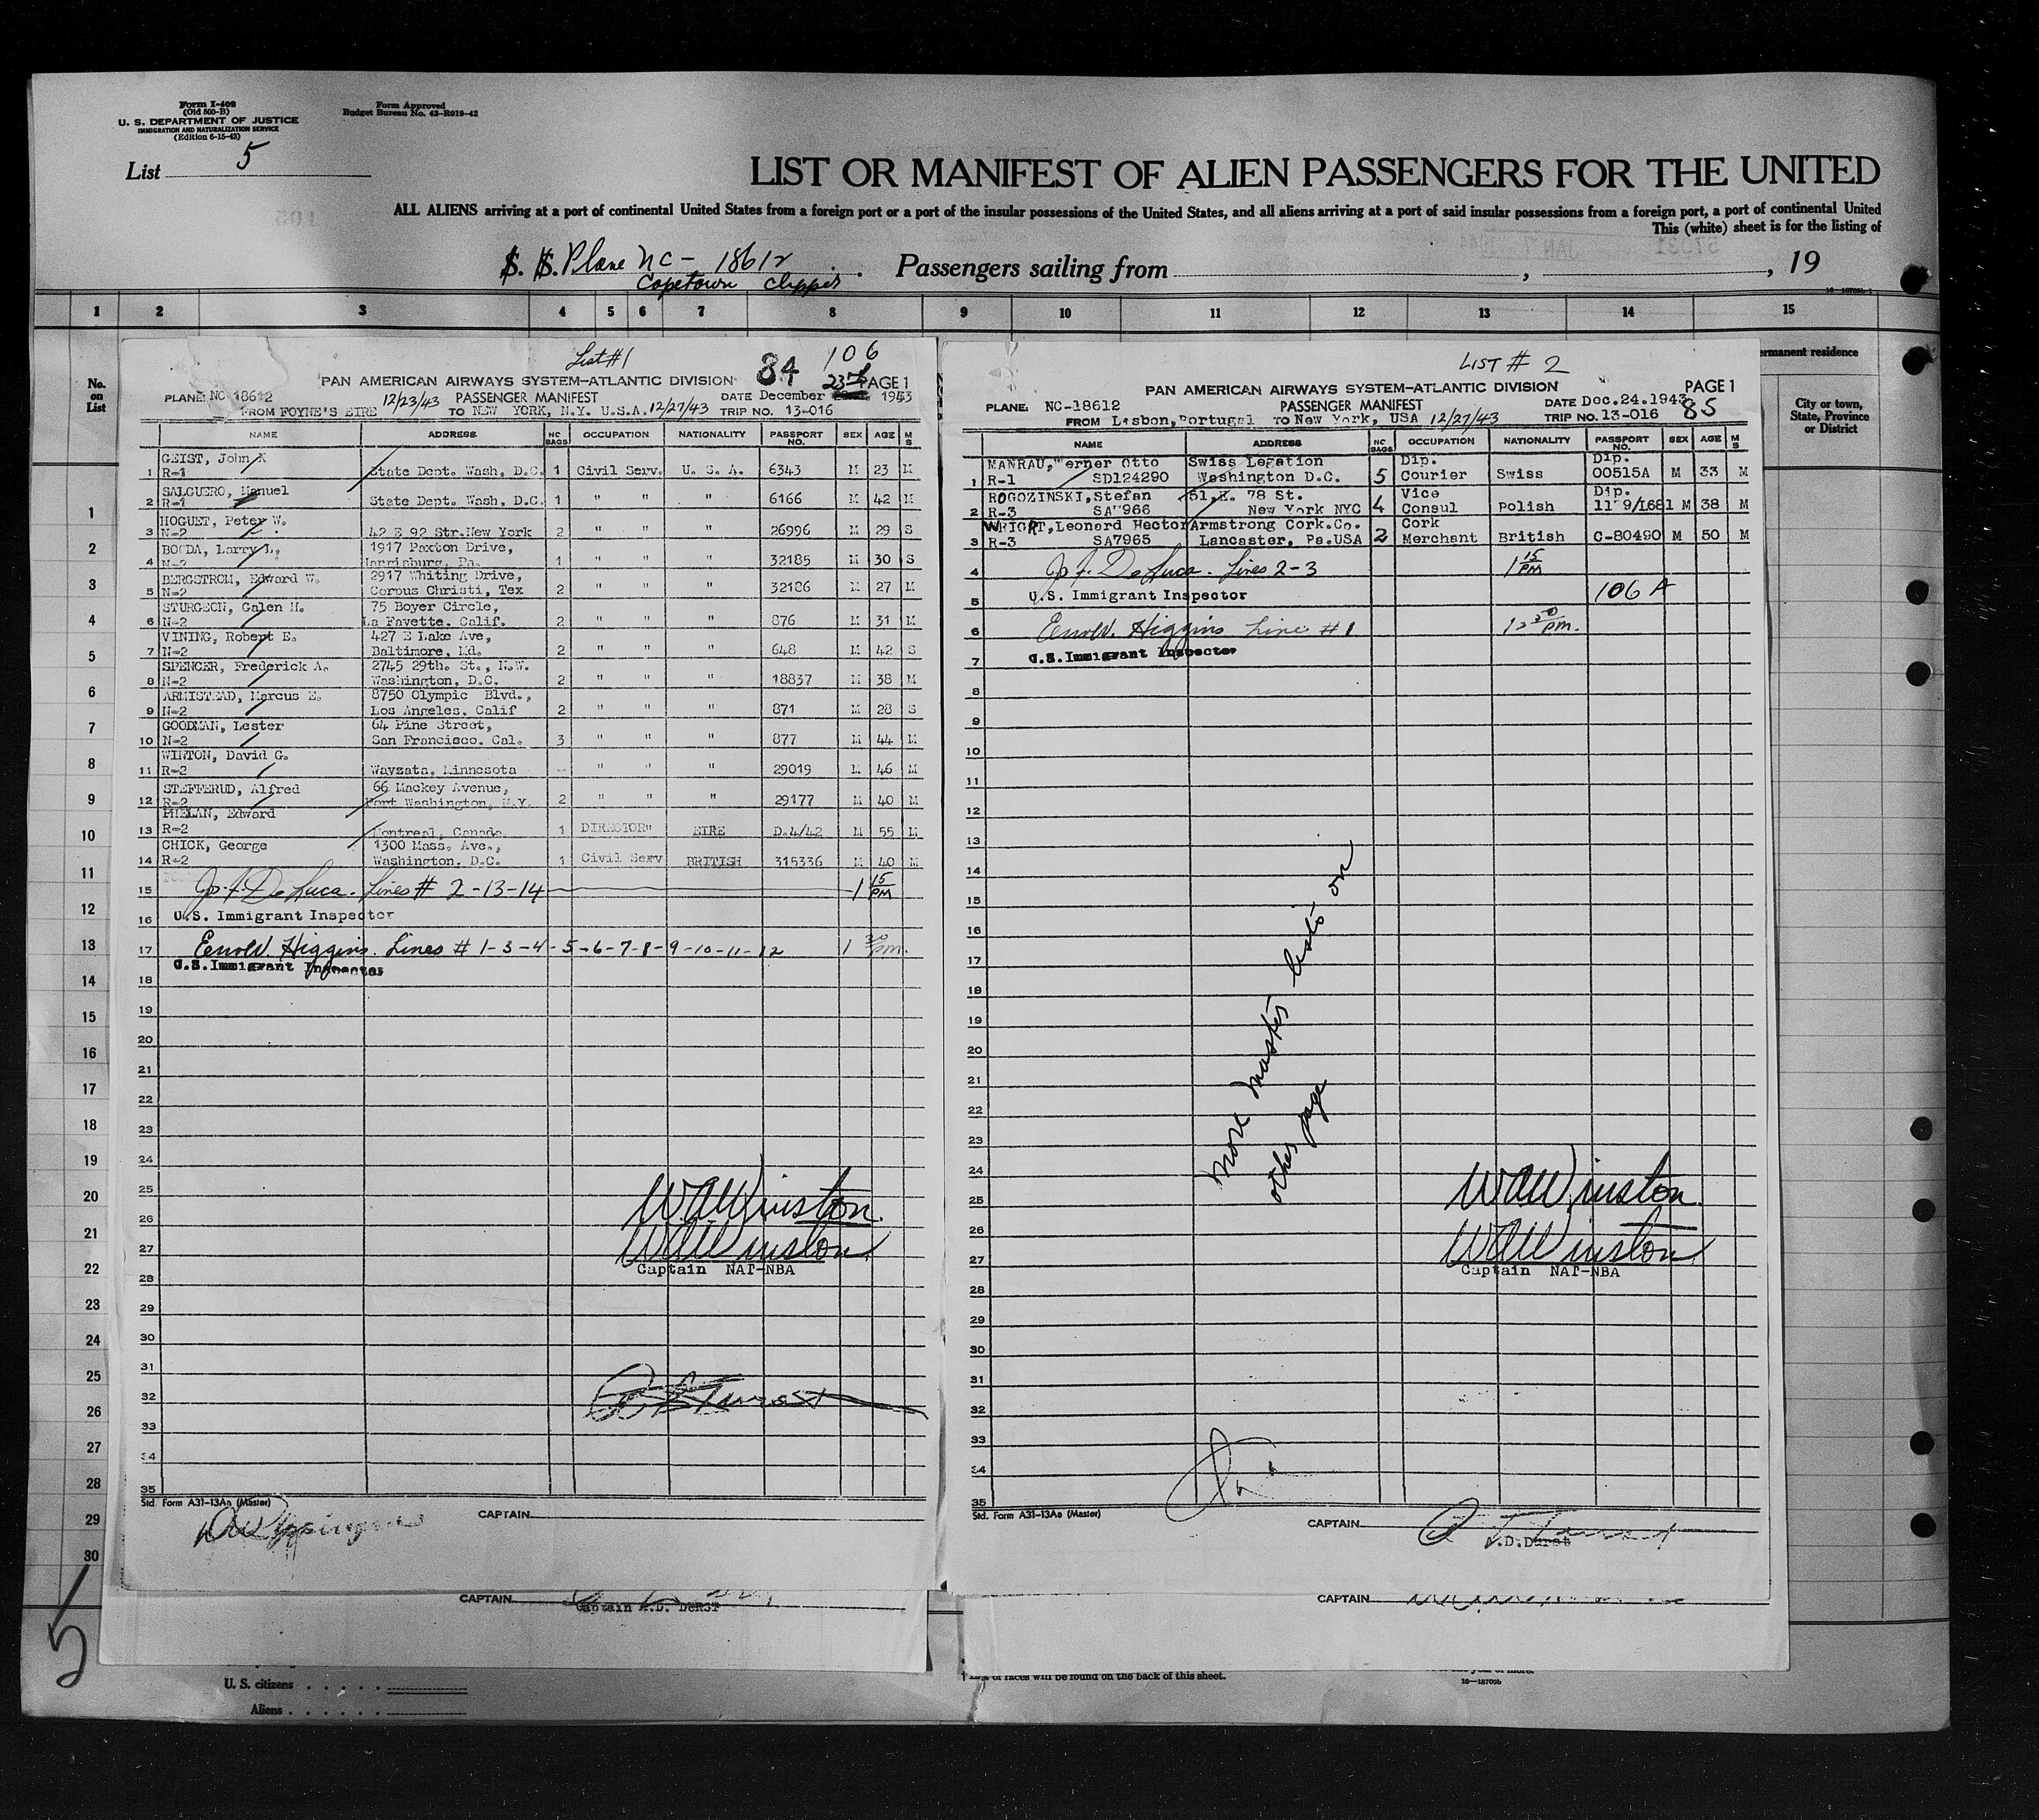 Form I-402
(Old 500-B)
U. S. DEPARTMENT OF JUSTICE
IMMIGRATION AND NATURALIZATION SERVICE
(Edition 6-15-43)
Form Approved
Budget Bureau No. 43-R019-42
List 5
LIST OR MANIFEST OF ALIEN PASSENGERS FOR THE UNITED
ALL ALIENS arriving at a port of continental United States from a foreign port or a port of the insular possessions of the United States, and all aliens arriving at a port of said insular possessions from a foreign port, a port of continental United
This (white) sheet is for the listing of
S. S. Plane NC - 18612 Passengers sailing from , , 19
Capetown Clipper
1 2 3 4 5 6 7 8 9 10 11 12 13 14 15
No. on List
ermanent residence
City or town, State, Province or District
List #1
84 106
PAN AMERICAN AIRWAYS SYSTEM-ATLANTIC DIVISION 23rd PAGE 1
PLANE: NC 18612 12/23/43 PASSENGER MANIFEST DATE December 1943
FROM FOYNE'S EIRE TO NEW YORK, N.Y. U.S.A. 12/27/43 TRIP NO. 13-016
NAME ADDRESS NC BAGS OCCUPATION NATIONALITY PASSPORT NO. SEX AGE M S
GEIST, John K
1 R-1 State Dept. Wash, D.C. 1 Civil Serv. U. S. A. 6343 M 23 M
SALGUERO, Manuel
2 R-1 State Dept. Wash, D.C. 1 " " " 6166 M 42 M
HOGUET, Peter W.
3 N-2 42 E 92 Str.New York 2 " " " 26996 M 29 S
BOGDA, Larry L. 1917 Paxton Drive,
4 N-2 Harrisburg, Pa. 1 " " " 32185 M 30 S
BERGSTROM, Edward W. 2917 Whiting Drive,
5 N-2 Corpus Christi, Tex 2 " " " 32186 M 27 M
STURGEON, Galen H. 75 Boyer Circle,
6 N-2 La Fayette. Calif. 2 " " " 876 M 31 M
VINING, Robert E. 427 E Lake Ave,
7 N-2 Baltimore, Md. 2 " " " 648 M 42 S
SPENCER, Frederick A. 2745 29th. St., N.W.
8 N-2 Washington, D.C. 2 " " " 18837 M 38 M
ARMISTEAD, Marcus E. 8750 Olympic Blvd.,
9 N-2 Los Angeles, Calif 2 " " " 871 M 28 S
GOODMAN, Lester 64 Pine Street,
10 N-2 San Francisco. Cal. 3 " " " 877 M 44 M
WINTON, David G.
11 R-2 Wayzata, Minnesota - " " " 29019 M 46 M
STEFFERUD, Alfred 66 Mackey Avenue,
12 R-2 Port Washington, N.Y. 2 " " " 29177 M 40 M
PHELAN, Edward
13 R-2 Montreal, Canada 1 DIRECTOR" EIRE D.4/42 M 55 M
CHICK, George 1300 Mass. Ave.,
14 R-2 Washington, D.C. 1 Civil Serv BRITISH 315336 M 40 M
15 Jo. F. De Luca. Lines # 2-13-14 1 15 PM
16 U.S. Immigrant Inspector
17 Errol W. Higgins. Lines # 1-3-4-5-6-7-8-9-10-11-12 1 30 PM.
U.S. Immigrant Inspector
18
19
20
21
22
23
24
25 W.A. Winston.
26
27 W.A. Winston
Captain NAT-NBA
28
29
30
31
32
33
34
35
Std. Form A31-13Aa (Master)
CAPTAIN
CAPTAIN
Captain A.D. DURST
LIST # 2
PAN AMERICAN AIRWAYS SYSTEM-ATLANTIC DIVISION PAGE 1
PLANE: NC-18612 PASSENGER MANIFEST DATE Dec.24.1943 85
FROM Lisbon,Portugal TO New York, USA 12/27/43 TRIP NO. 13-016
NAME ADDRESS NC BAGS OCCUPATION NATIONALITY PASSPORT NO. SEX AGE M S
MANRAU, Werner Otto Swiss Legation Dip. Dip.
1 R-1 SD124290 Washington D.C. 5 Courier Swiss 00515A M 33 M
ROGOZINSKI,Stefan 51,E. 78 St. Vice Dip.
2 R-3 New York NYC 4 Consul Polish M 38 M
WRIGHT,Leonard Hector Armstrong Cork.Co. Cork
3 R-3 SA7965 Lancaster, Pa.USA 2 Merchant British C-80490 M 50 M
4 Jo. F. De Luca. Lines 2-3 1 15 PM
5 U.S. Immigrant Inspector 106 A
6 Errol W. Higgins Line #1 12 30 PM.
7 U.S. Immigrant Inspector
8
9
10
11
12
13
14
15
16
17
18
19
20
21
22
23
24
25
26
27
28
29
30
31
32
33
34
35
more master lists on
other page
W.A. Winston.
W.A. Winston
Captain NAT-NBA
Std. Form A31-13Aa (Master)
CAPTAIN
A.D.Durst
CAPTAIN
1
2
3
4
5
6
7
8
9
10
11
12
13
14
15
16
17
18
19
20
21
22
23
24
25
26
27
28
29
30
5
U. S. citizens
Aliens
of races will be found on the back of this sheet.
16-18709b